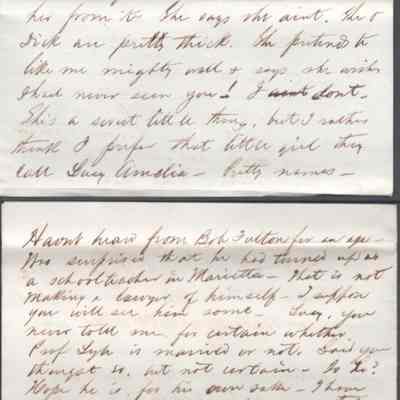 her from it. She says she aint. She &
Dick are pretty thick. She pretend to
like me mighty well & says she wishes
I had never seen you! I aint dont.
She's a sweet little thing, but I rather
think I prefer that little girl they
call Lucy Amelia - Pretty names -
Havnt heard from Bob Fulton for an age -
Was surprised that he had turned up as
a schoolteacher in Marietta - That is not
making a lawyer of himself - I suppose
you will see him some - Lucy, you
never told me for certain whether
Prof Lyle is married or not. Said you
thought so, but not certain - Is he?
Hope he is, for his own sake - I have